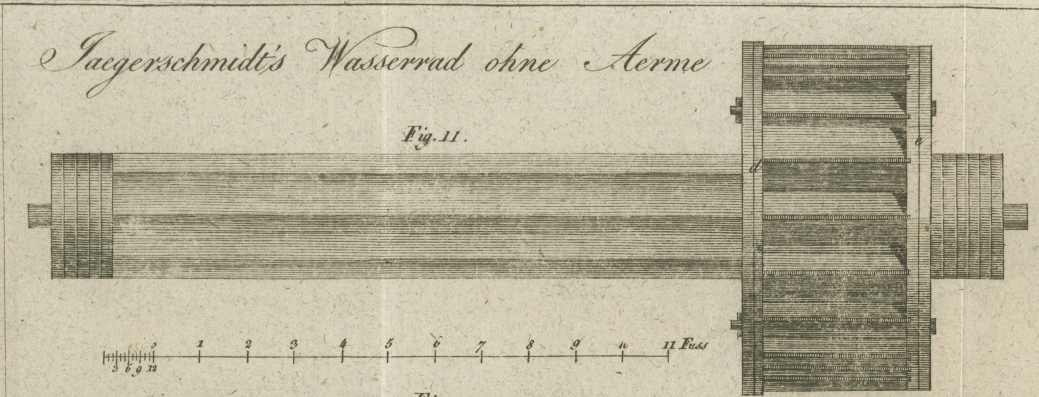 Jaegerschmidt's Wasserrad ohne Aerme
Fig. 11.
d
e
0 1 2 3 4 5 6 7 8 9 11 Fuss
3 6 9 12